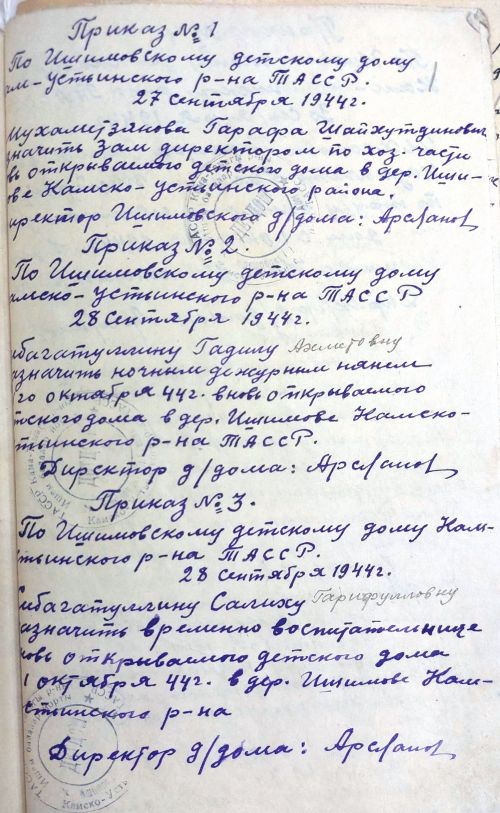 Приказ № 1
По Ишимовскому детскому дому
ам-Устьинского р-на ТАССР.
27 сентября 1944г.
Мухаметзянова Гарафа Шайхутдинович
значить Зам директором по хоз. части
вь открываемого детского дома в дер. Иши-
ове Камско-устьинского района.
иректор Ишимовского д/дома: Арсланов
Приказ № 2.
По Ишимовскому детскому дому
амско-Устьинского р-на ТАССР
28 сентября 1944г.
ибагатуллину Гадилу Ахметовну
азначить ночным дежурным няней
го октября 44г. вновь открываемого
тского дома в дер. Ишимове Камско-
тьинского р-на ТАССР.
Директор д/дома: Арсланов
Приказ № 3.
По Ишимовскому детскому дому Кам-
стьинского р-на ТАССР.
28 сентября 1944г.
ибагатуллину Салиху Гарифулловну
азначить временно воспитательнице
новь открываемого детского дома
1 октября 44г. в дер. Ишимове Кам-
стьинского р-на
Директор д/дома: Арсланов